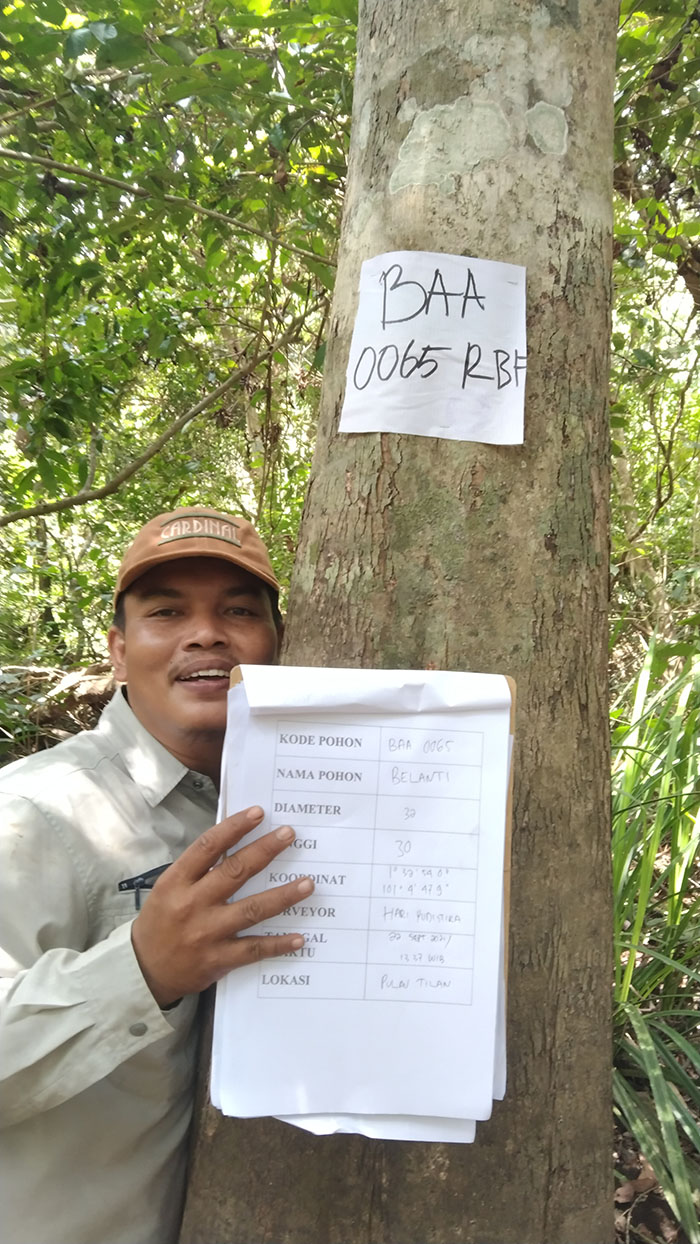 BAA
0065 RBF
CARDINAL
KODE POHON BAA 0065
NAMA POHON BELANTI
DIAMETER 32
NGGI 30
KOORDINAT 1° 37' 54.0"
101° 4' 47.9"
RVEYOR HARI
TANGGAL 22 SEPT 2021
AKTU 13.37 WIB
LOKASI PULAU TILAN